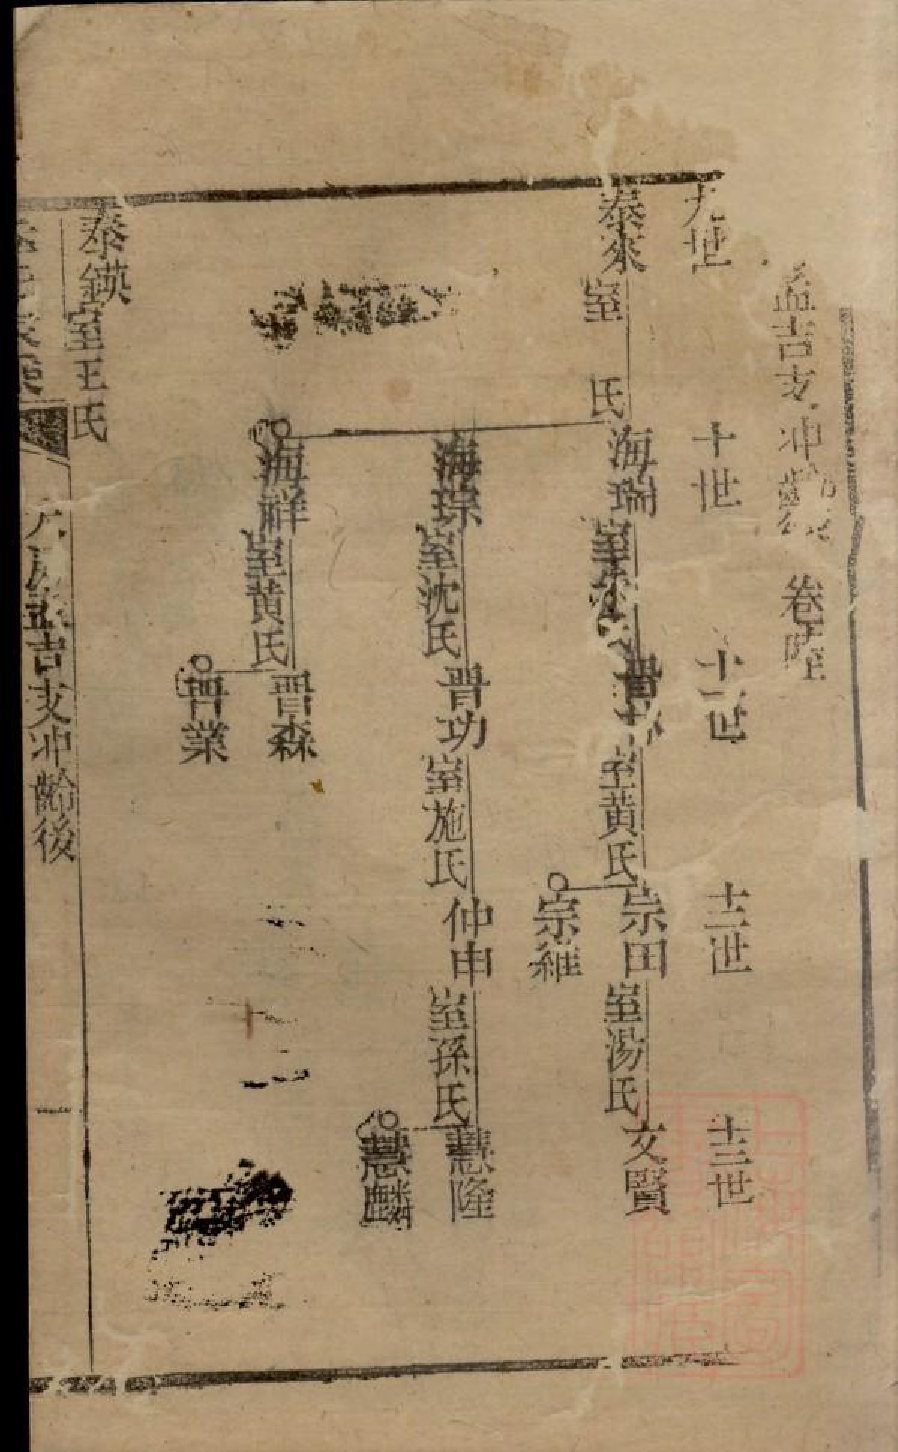 孟吉支冲齡 卷陸
九世
十世
十一世
十二世
十三世
泰來 室 氏
海瑞 室
晋 室黄氏
宗田 室湯氏
文賢
宗維
海琮 室沈氏
晋功 室施氏
仲申 室孫氏
慧隆
慧麟
海祥 室黄氏
晋森
晋業
泰鍈 室王氏
孟吉支冲齡後